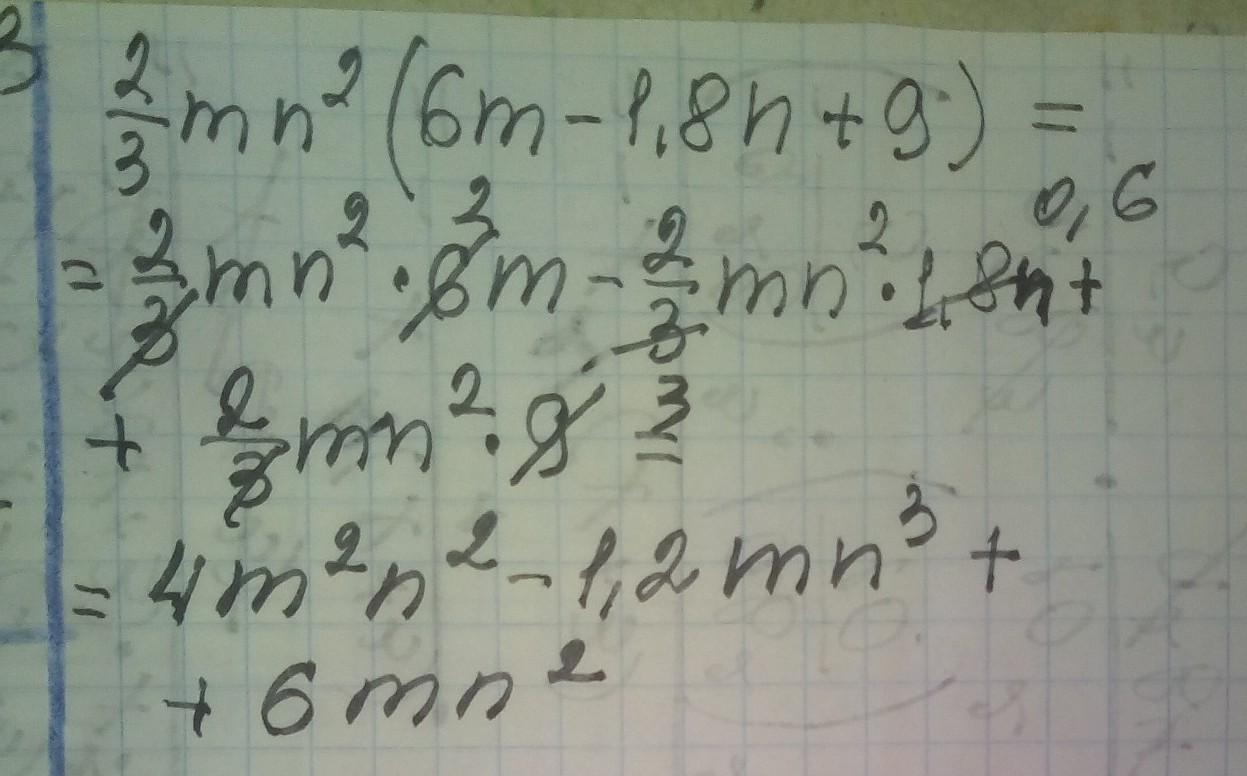 2/3 mn² (6m - 1,8n + 9) =
= 2/3 mn² · 6m - 2/3 mn² · 1,8n +
2 0,6
+ 2/3 mn² · 9 =
3
= 4m²n² - 1,2mn³ +
+ 6mn²